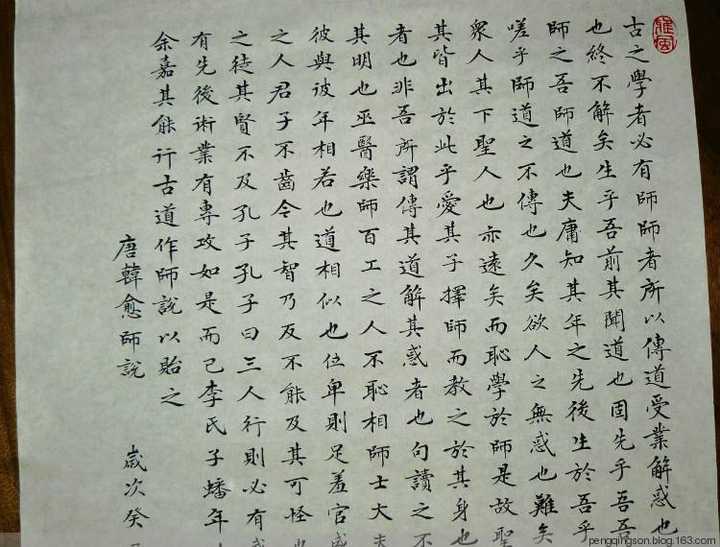 古之學者必有師師者所以傳道受業解惑也
也終不解矣生乎吾前其聞道也固先乎吾吾
師之吾師道也夫庸知其年之先後生於吾乎
嗟乎師道之不傳也久矣欲人之無惑也難矣
衆人其下聖人也亦遠矣而恥學於師是故聖
其皆出於此乎愛其子擇師而教之於其身也
者也非吾所謂傳其道解其惑者也句讀之不
其明也巫醫樂師百工之人不恥相師士大夫
彼與彼年相若也道相似也位卑則足羞官盛
之人君子不齒今其智乃反不能及其可怪也
之徒其賢不及孔子孔子曰三人行則必有
有先後術業有專攻如是而已李氏子蟠年
余嘉其能行古道作師說以貽之
唐韓愈師說 歲次癸
pengqingson.blog.163.com